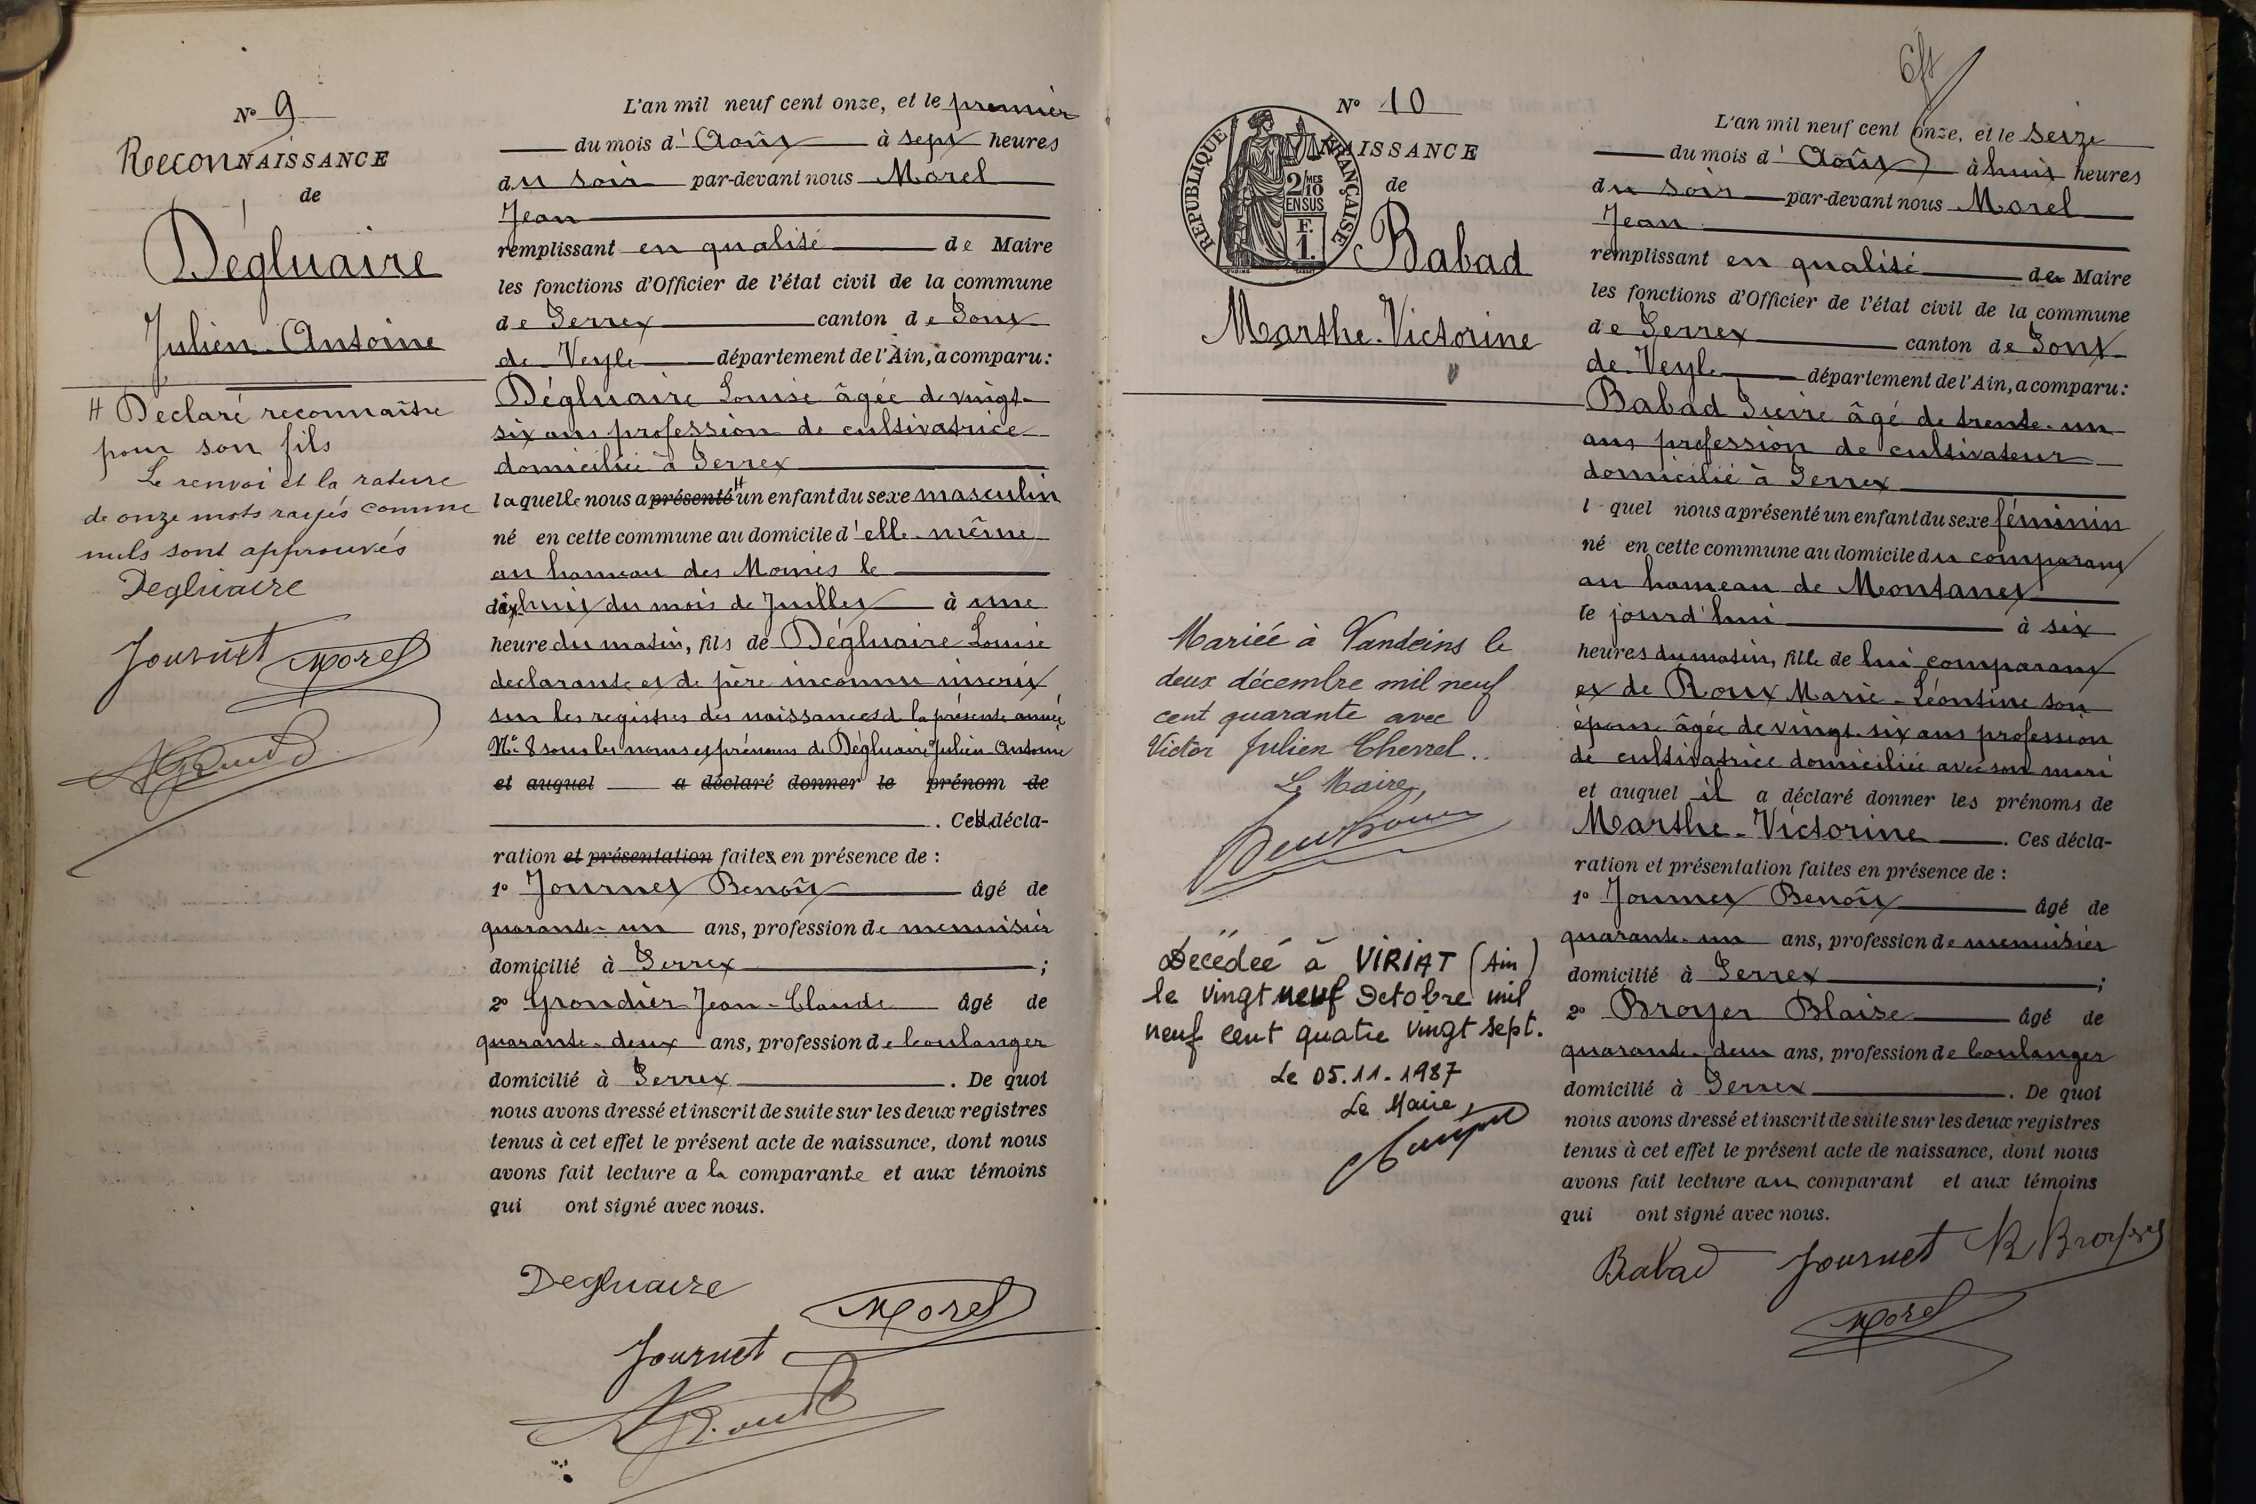 N° 9
ReconNAISSANCE
de
Dégluaire
Julien-Antoine
H Déclaré reconnaître
pour son fils
Le renvoi et la rature
de onze mots rayés comme
nuls sont approuvés
Degluaire
Journet Morel
L'an mil neuf cent onze, et le premier
du mois d'Août à sept heures
du soir par-devant nous Morel
Jean
remplissant en qualité de Maire
les fonctions d'Officier de l'état civil de la commune
de Perrex canton de Pont
de Veyle département de l'Ain, a comparu:
Dégluaire Louise âgée de vingt-
six ans profession de cultivatrice
domiciliée à Perrex
laquelle nous a présenté H un enfant du sexe masculin
né en cette commune au domicile d'elle-même
au hameau des Moines le
dixhuit du mois de Juillet à une
heure du matin, fils de Dégluaire Louise
déclarante et de père inconnu inscrit
sur les registres des naissances d la présente année
N° 8 sous les noms et prénoms de Dégluaire Julien Antoine
et auquel a déclaré donner le prénom de
. Cette décla-
ration et présentation faites en présence de :
1° Journet Benoît âgé de
quarante-un ans, profession de menuisier
domicilié à Perrex ;
2° Grondier Jean-Claude âgé de
quarante-deux ans, profession de boulanger
domicilié à Perrex . De quoi
nous avons dressé et inscrit de suite sur les deux registres
tenus à cet effet le présent acte de naissance, dont nous
avons fait lecture a la comparante et aux témoins
qui ont signé avec nous.
Degluaire
Morel
Journet
N° 10
NAISSANCE
de
RÉPUBLIQUE FRANÇAISE
2/10 MES
EN SUS
F.
1.
Babad
Marthe-Victorine
Mariée à Vandeins le
deux décembre mil neuf
cent quarante avec
Victor Julien Chevrel..
Le Maire,
Décédée à VIRIAT (Ain)
le vingt neuf Octobre mil
neuf cent quatre vingt sept.
Le 05.11.1987
Le Maire,
L'an mil neuf cent onze, et le seize
du mois d'Août à huit heures
du soir par-devant nous Morel
Jean
remplissant en qualité de Maire
les fonctions d'Officier de l'état civil de la commune
de Perrex canton de Pont
de Veyle département de l'Ain, a comparu:
Babad Pierre âgé de trente-un
ans, profession de cultivateur
domicilié à Perrex
l quel nous a présenté un enfant du sexe féminin
né en cette commune au domicile du comparant
au hameau de Montanet
le jourd'hui à six
heures du matin, fille de lui comparant
et de Roux Marie-Léontine son
épouse âgée de vingt-six ans profession
de cultivatrice domiciliée avec son mari
et auquel il a déclaré donner les prénoms de
Marthe-Victorine . Ces décla-
ration et présentation faites en présence de :
1° Journet Benoît âgé de
quarante-un ans, profession de menuisier
domicilié à Perrex ;
2° Broyer Blaise âgé de
quarante-deux ans, profession de boulanger
domicilié à Perrex . De quoi
nous avons dressé et inscrit de suite sur les deux registres
tenus à cet effet le présent acte de naissance, dont nous
avons fait lecture au comparant et aux témoins
qui ont signé avec nous.
Babad Journet B Broyer
Morel